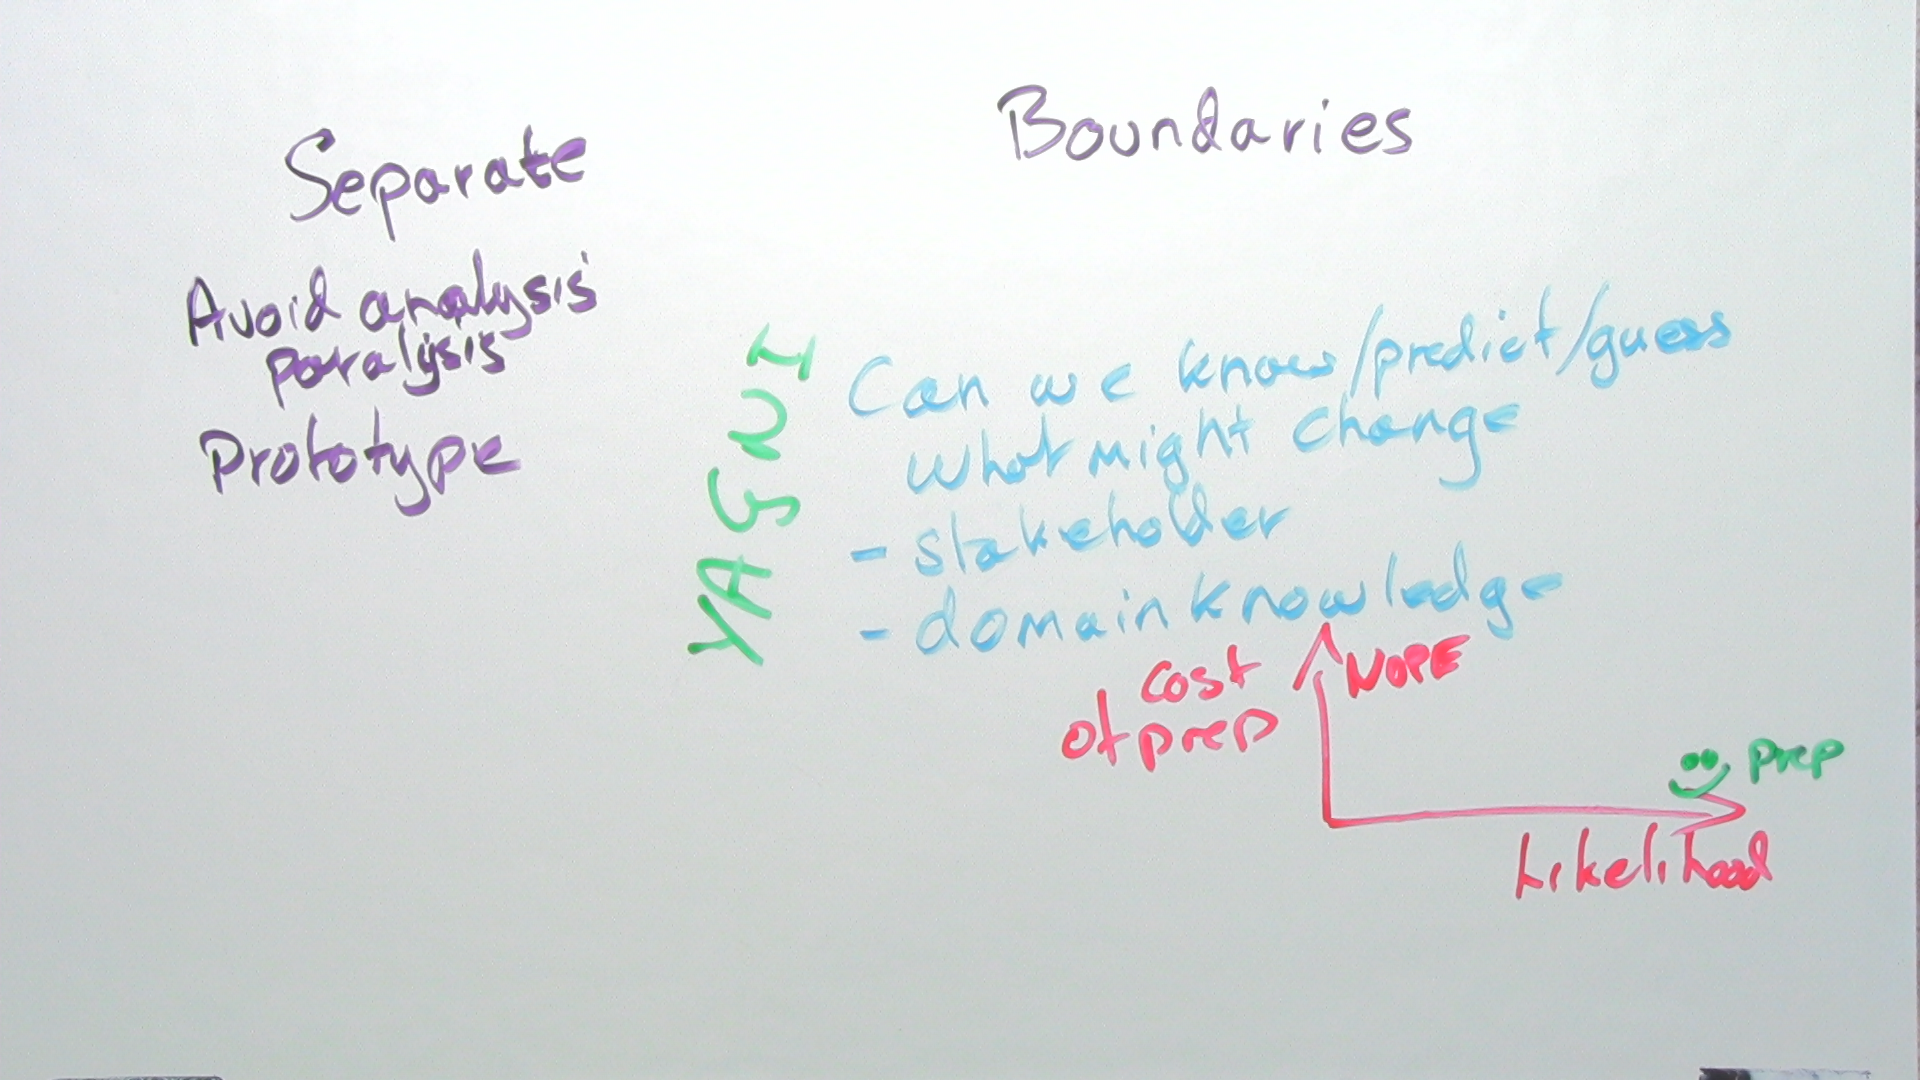 Separate
Avoid analysis
paralysis
Prototype
Boundaries
YAGNI
Can we know/predict/guess
what might change
- stakeholder
- domain knowledge
cost
of prep
NOPE
prep
Likelihood